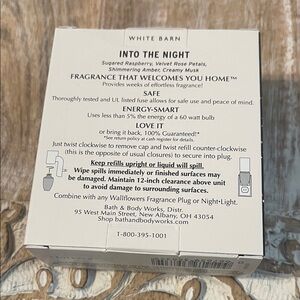 WHITE BARN
INTO THE NIGHT
Sugared Raspberry, Velvet Rose Petals,
Shimmering Amber, Creamy Musk
FRAGRANCE THAT WELCOMES YOU HOME™
Provides weeks of effortless fragrance!
SAFE
Thoroughly tested and UL listed fuse allows for safe use and peace of mind.
ENERGY-SMART
Uses less than 5% the energy of a 60 watt bulb
LOVE IT
or bring it back, 100% Guaranteed!*
*See return policy at cash register for details.
Just twist clockwise to remove cap and twist refill counter-clockwise
(this is the opposite of usual closures) to secure into plug.
Keep refills upright or liquid will spill.
Wipe spills immediately or finished surfaces may
be damaged. Maintain 12-inch clearance above unit
to avoid damage to surrounding surfaces.
Combine with any Wallflowers Fragrance Plug or Night-Light.
Bath & Body Works, Distr.
95 West Main Street, New Albany, OH 43054
Shop bathandbodyworks.com
1-800-395-1001